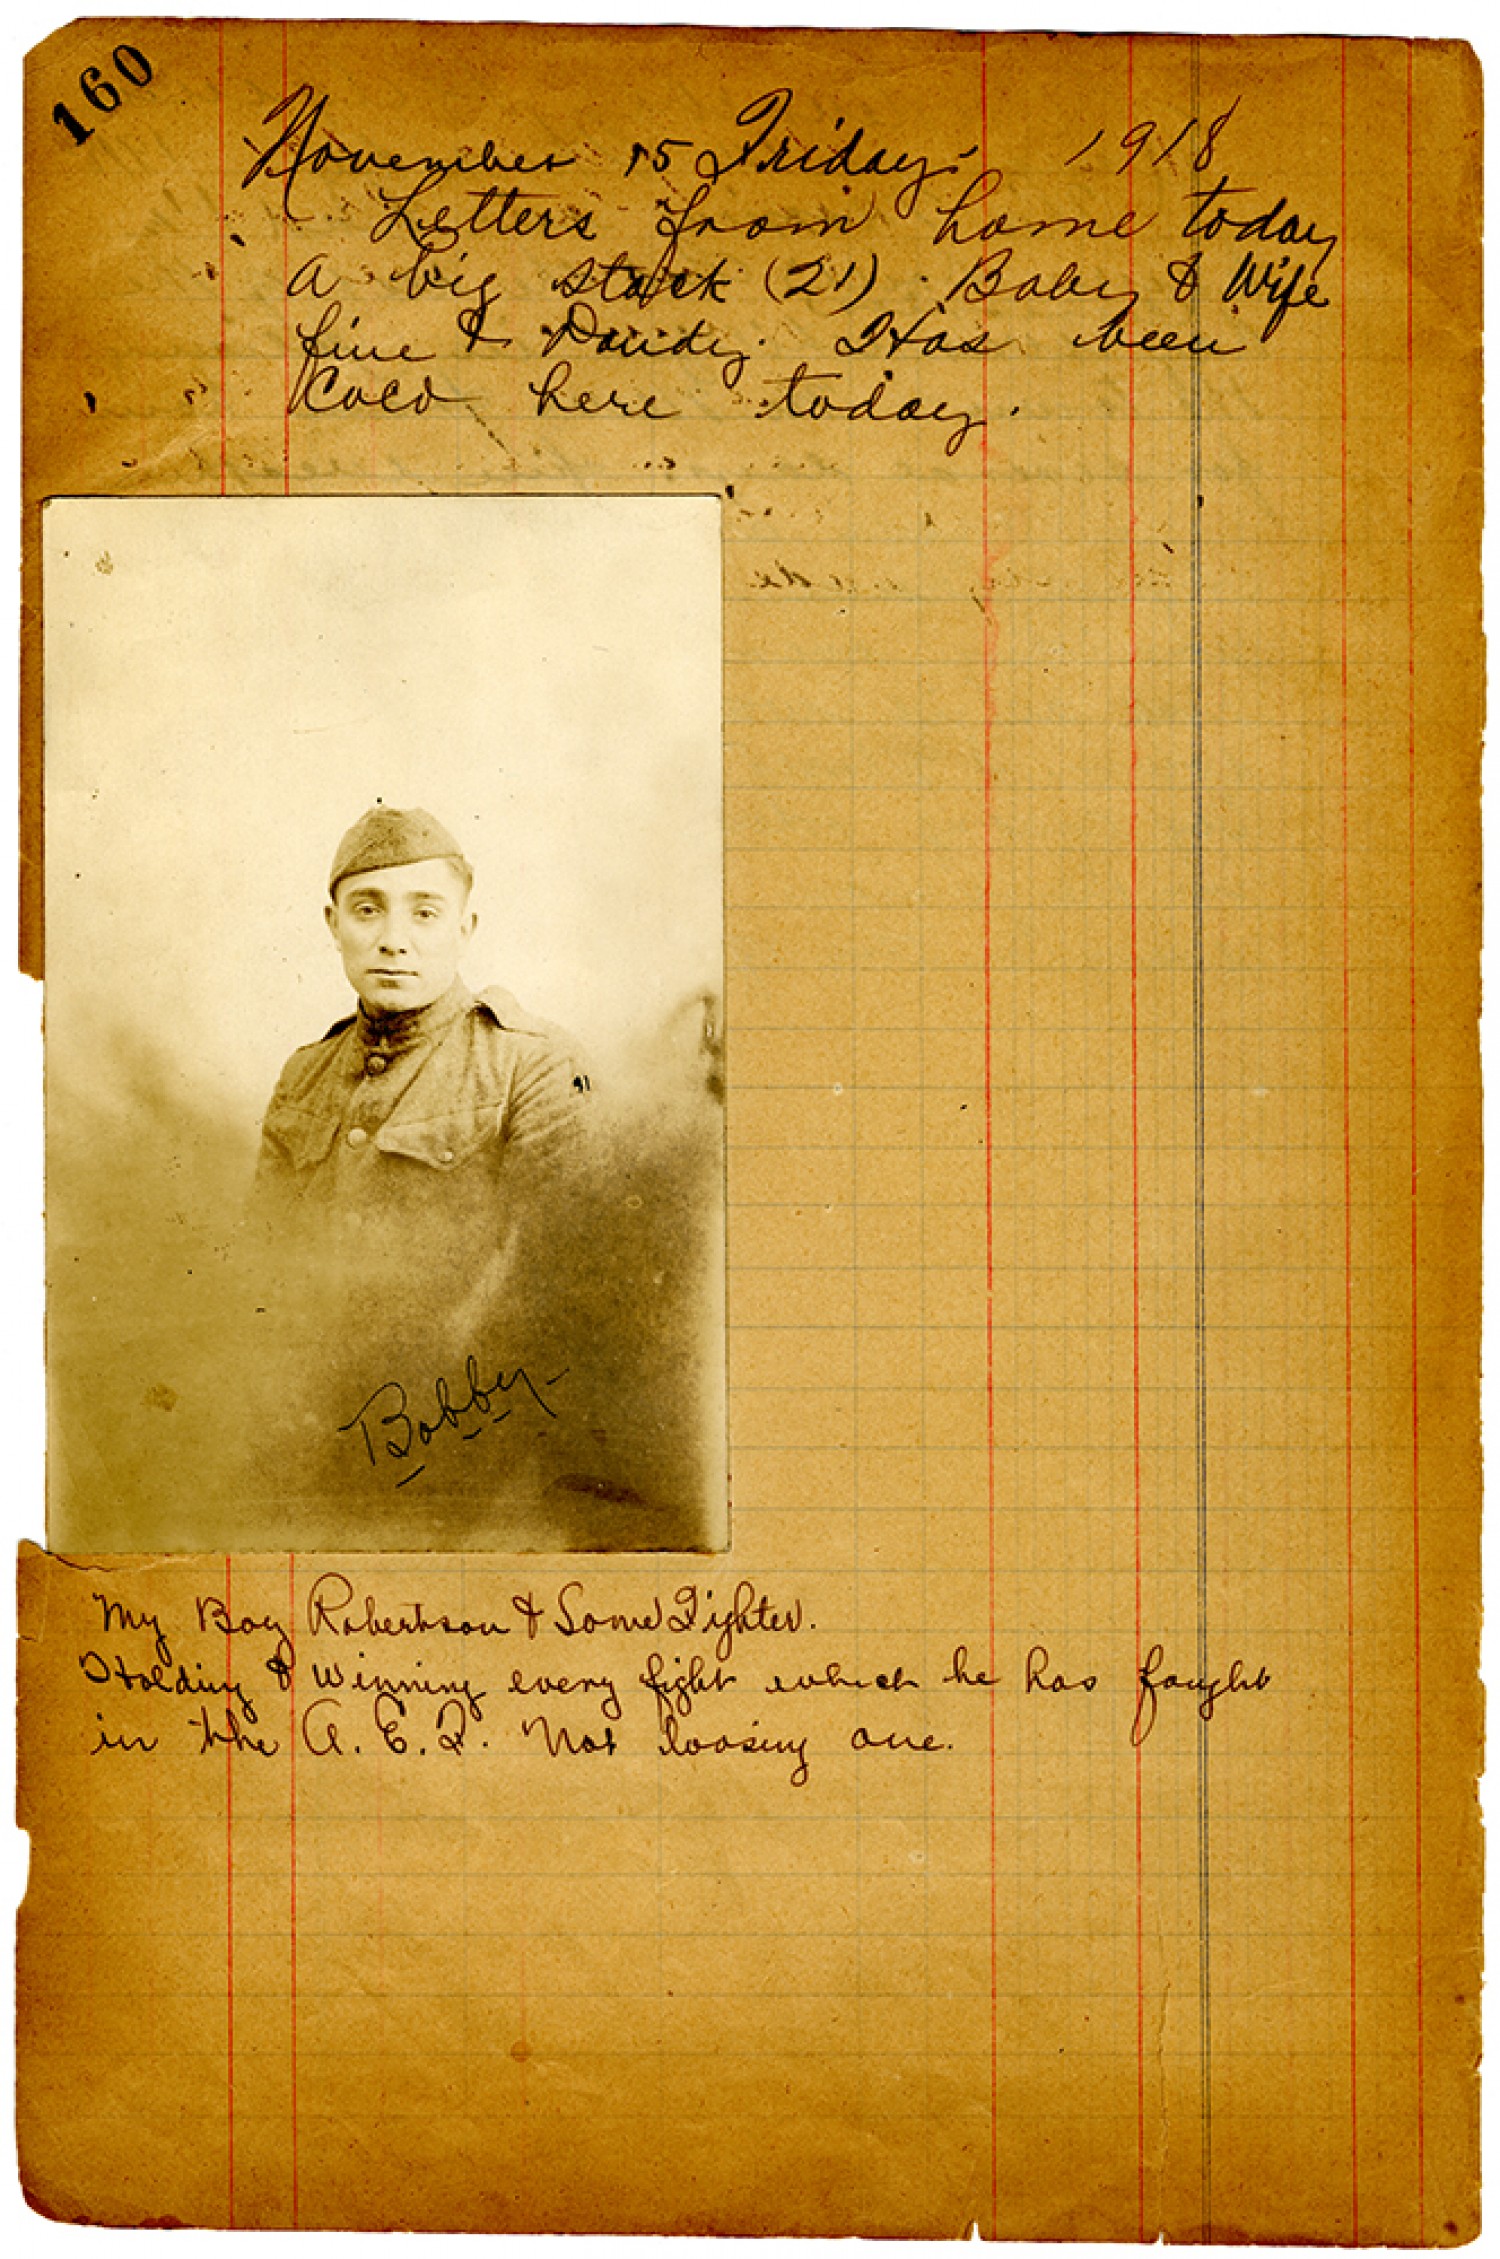 160
November 15 Friday- 1918
Letters from home today
a big stack (21). Baby & Wife
fine & Dandy. Has been
Cold here today.
Bobby
My Boy Robertson & Some Fighter.
Holding & Winning every fight which he has fought
in the A. E. F. Not loosing one.